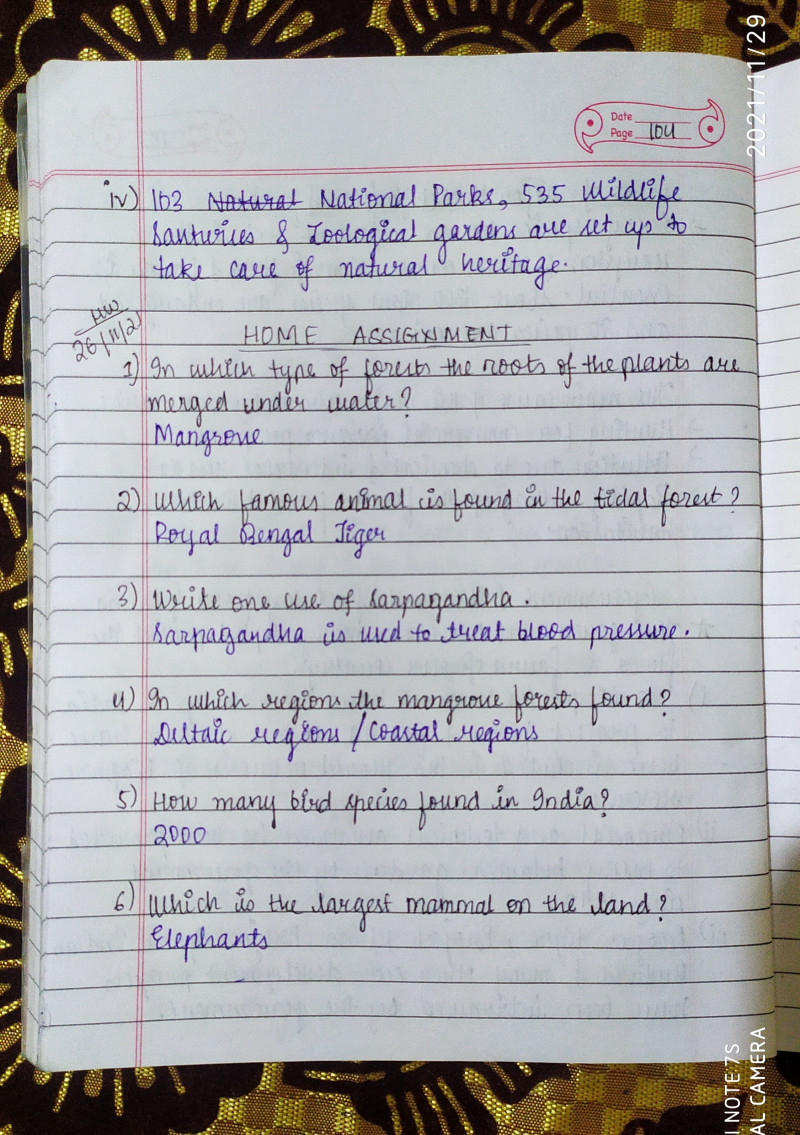 2021/11/29
Date
Page 104
iv) 103 Natural National Parks, 535 Wildlife
Santuries & Zoological gardens are set up to
take care of natural heritage.
HW
26/11/21
HOME ASSIGNMENT
1) In which type of forests the roots of the plants are
merged under water?
Mangrove
2) Which famous animal is found in the tidal forest?
Royal Bengal Tiger
3) Write one use of Sarpagandha.
Sarpagandha is used to treat blood pressure.
4) In which regions the mangrove forests found?
Deltaic regions / Coastal regions
5) How many bird species found in India?
2000
6) Which is the largest mammal on the land?
Elephants
I NOTE 7S
AL CAMERA